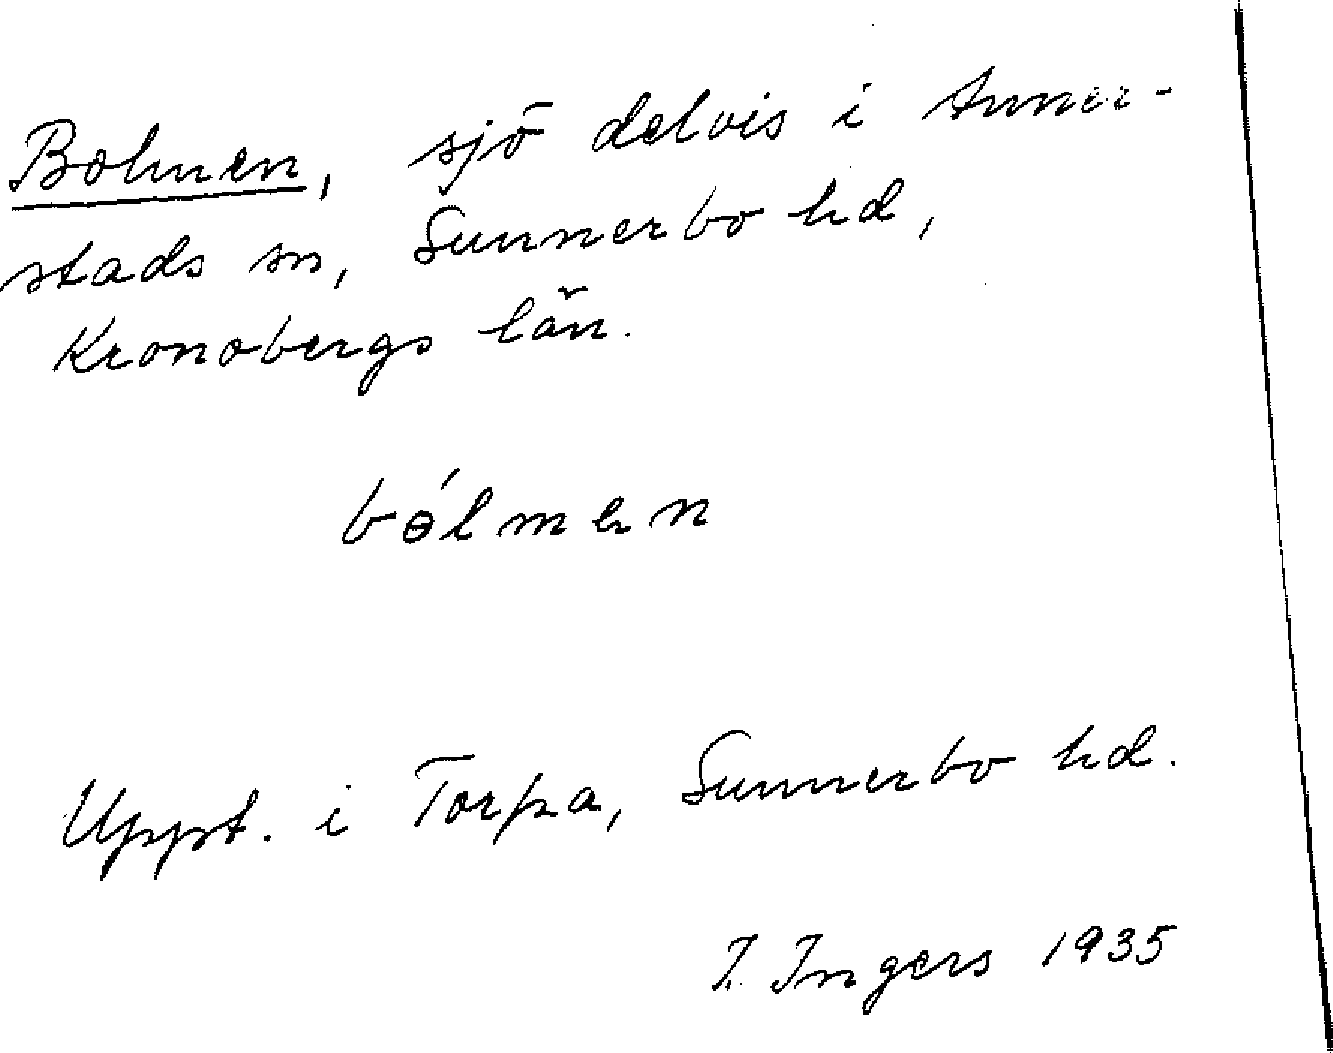 Bolmen, sjö delvis i Anner-
stads sn, Sunnerbo hd,
Kronobergs län.
bɵ́lmen
Uppt. i Torpa, Sunnerbo hd.
I. Ingers 1935